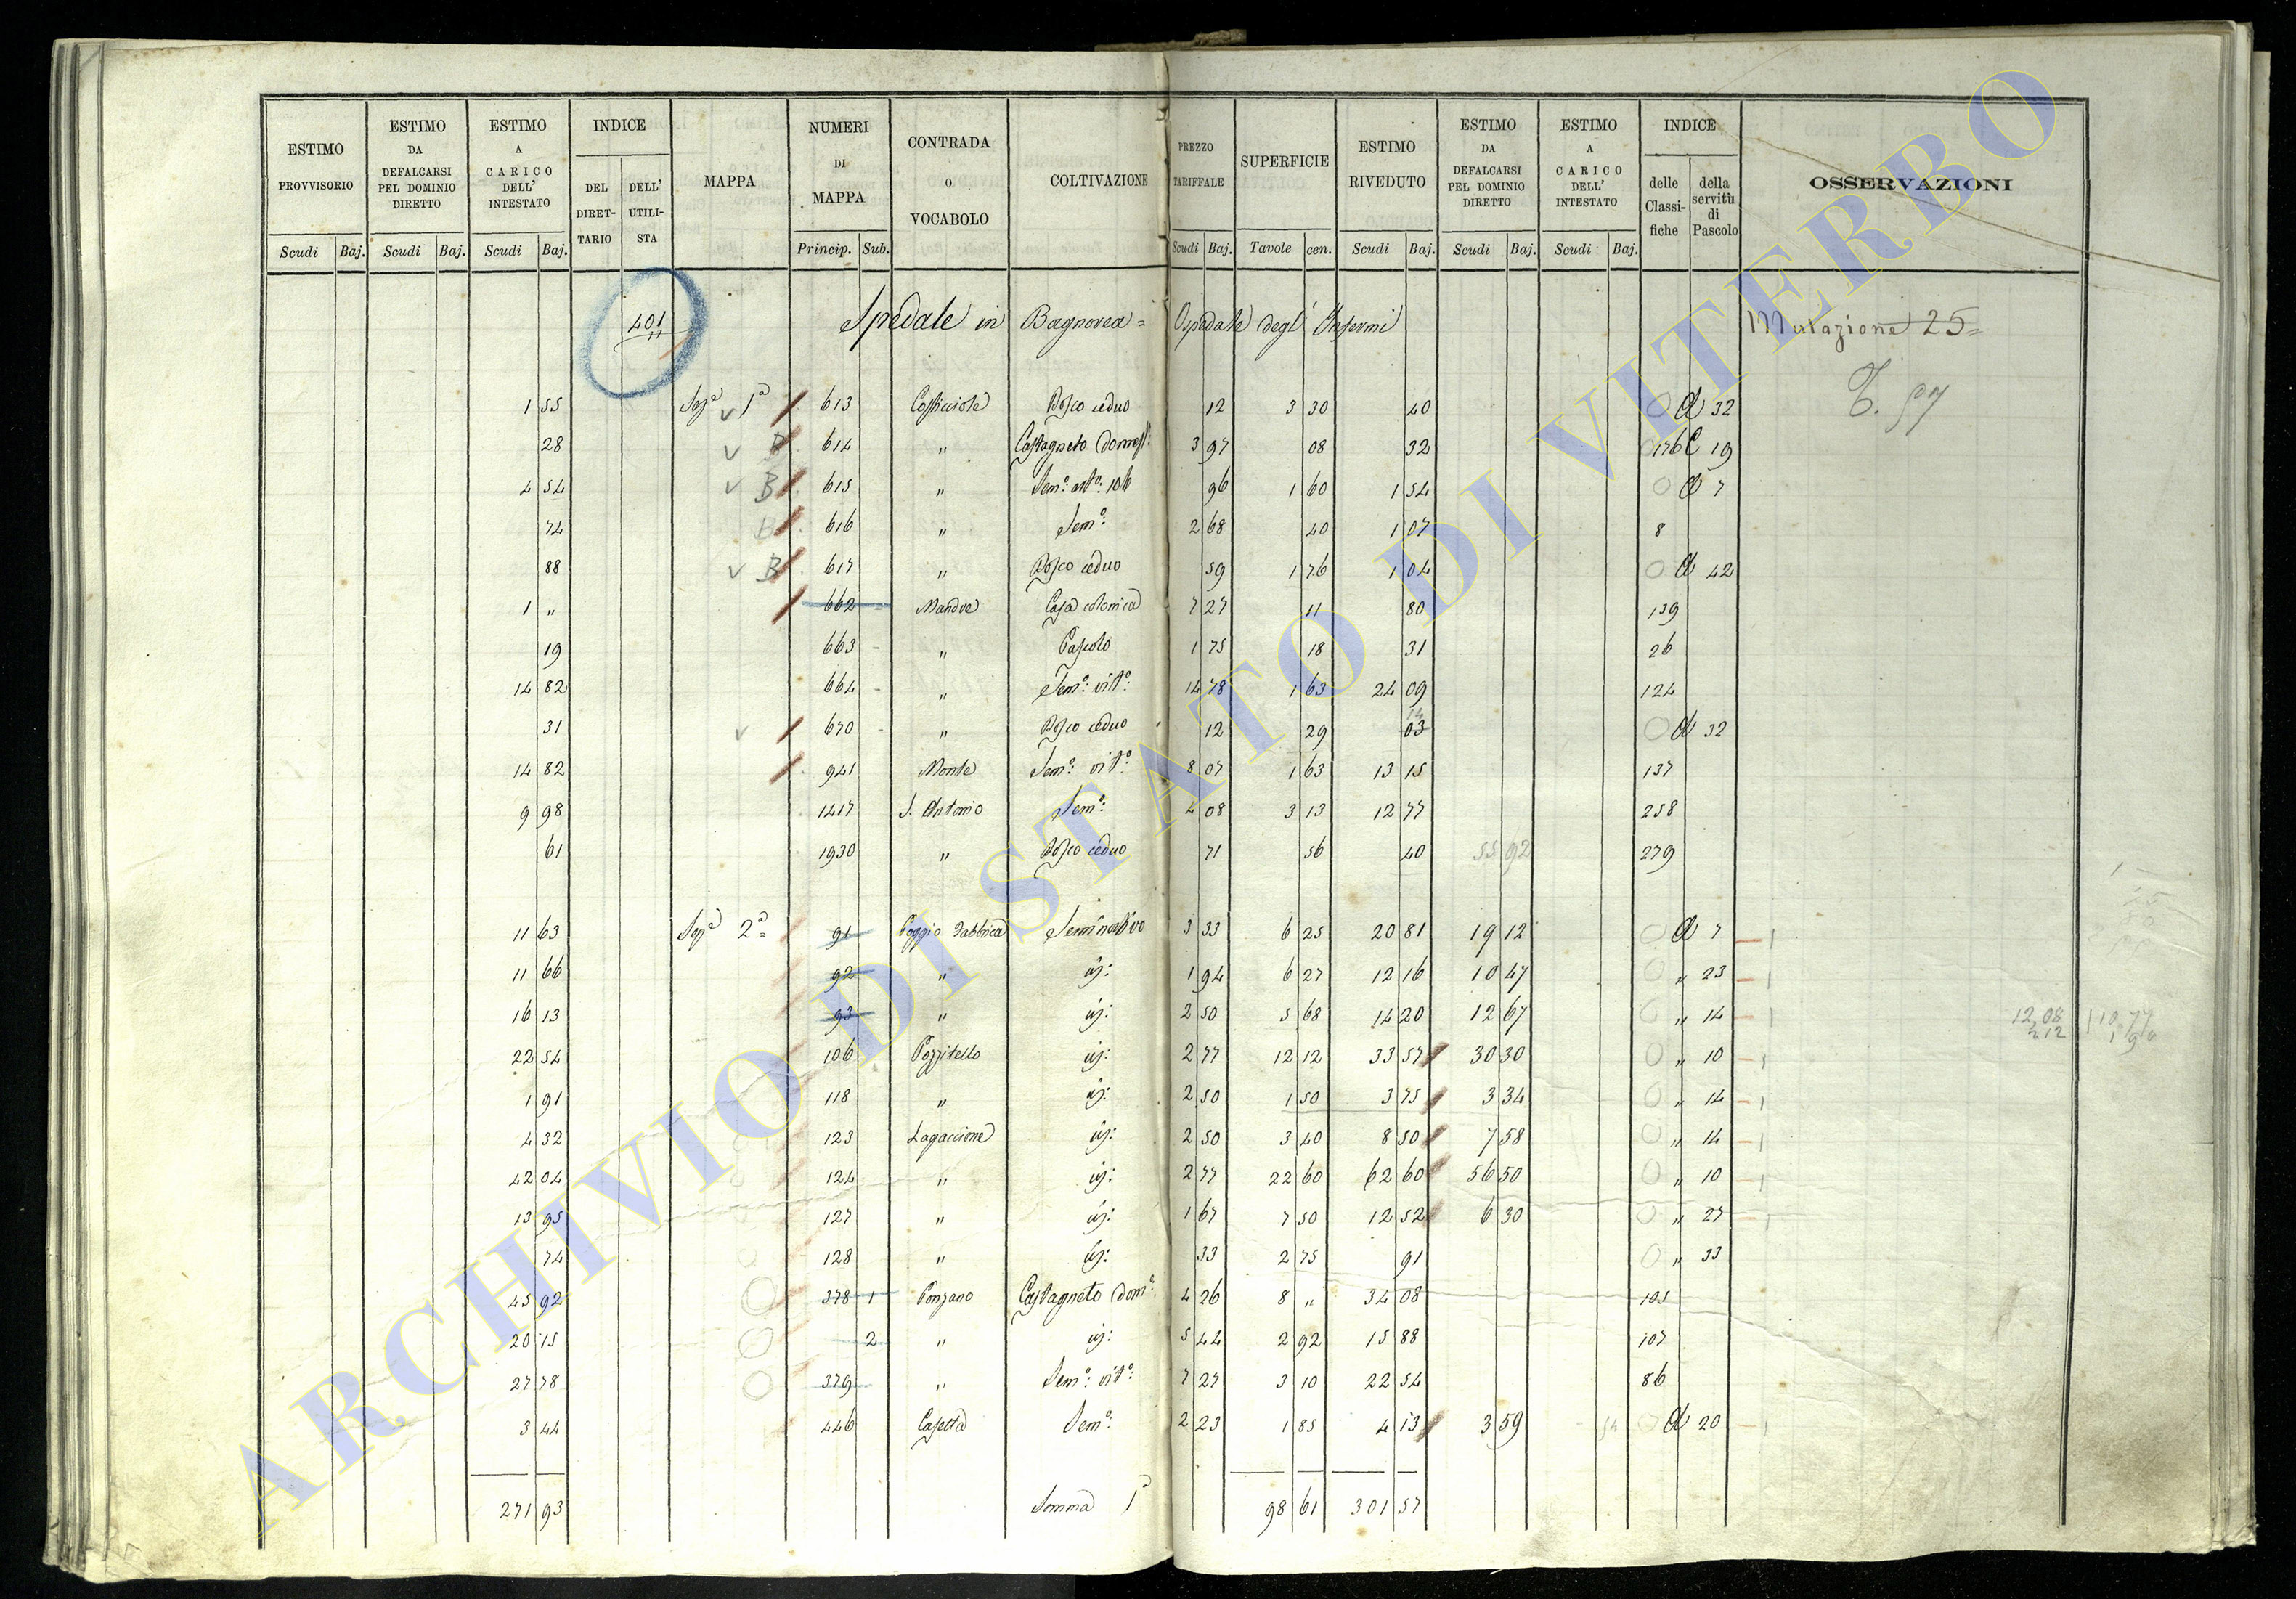 ESTIMO PROVVISORIO | ESTIMO DA DEFALCARSI PEL DOMINIO DIRETTO | ESTIMO A CARICO DELL' INTESTATO | INDICE | MAPPA | NUMERI DI MAPPA | CONTRADA O VOCABOLO | COLTIVAZIONE | PREZZO TARIFFALE | SUPERFICIE | ESTIMO RIVEDUTO | ESTIMO DA DEFALCARSI PEL DOMINIO DIRETTO | ESTIMO A CARICO DELL' INTESTATO | INDICE | OSSERVAZIONI
DEL DIRETTARIO | DELL' UTILISTA | delle Classifiche | della servitù di Pascolo
Scudi | Baj. | Scudi | Baj. | Scudi | Baj. | Princip. | Sub. | Scudi | Baj. | Tavole | cen. | Scudi | Baj. | Scudi | Baj. | Scudi | Baj.
401 Spedale in Bagnorea = Ospedale degl' Infermi Mutazione 25=
1 55 Sez.a 1a 613 Bosco ceduo 12 3 30 40 A 32
28 614 " Castagneto domest: 3 97 08 32 176 C 19
4 54 B 615 " 96 1 60 1 54 A 7
74 616 " Sem.o: 2 68 40 1 07 8
88 B 617 " Bosco ceduo 59 1 76 1 04 A 42
1 " 662 Casa colonica 7 27 11 80 139
19 663 " Pascolo 1 75 18 31 26
14 82 664 " Sem.o: vit.o: 14 78 1 63 24 09 124
31 670 " Bosco ceduo 12 29 03 A 32
14 82 941 Monte Sem.o: vit.o: 8 07 1 63 13 15 137
9 98 1417 S. Antonio Sem.o: 4 08 3 13 12 77 258
61 1930 " Bosco ceduo 71 56 40 55 92 279
11 63 Sez.a 2a= 91 Poggio Seminativo 3 33 6 25 20 81 19 12 A 7
11 66 92 " id: 1 94 6 27 12 16 10 47 " 23
16 13 93 " id: 2 50 5 68 14 20 12 67 " 14
22 54 106 Pozzitello id: 2 77 12 12 33 57 30 30 " 10
1 91 118 " id: 2 50 1 50 3 75 3 34 " 14
4 32 123 Lagaccione id: 2 50 3 40 8 50 7 58 " 14
42 04 124 " id: 2 77 22 60 62 60 56 50 " 10
13 95 127 " id: 1 67 7 50 12 52 6 30 " 27
74 128 " id: 33 2 75 91 " 33
45 92 378 1 Ponzano Castagneto dom.o: 4 26 8 " 34 08 105
20 15 2 " id: 5 44 2 92 15 88 107
27 78 379 " Sem.o: vit.o: 7 27 3 10 22 54 86
3 44 446 Casetta Sem.o: 2 23 1 85 4 13 3 59 A 20
271 93 Somma 1a 98 61 301 57
ARCHIVIO DI STATO DI VITERBO